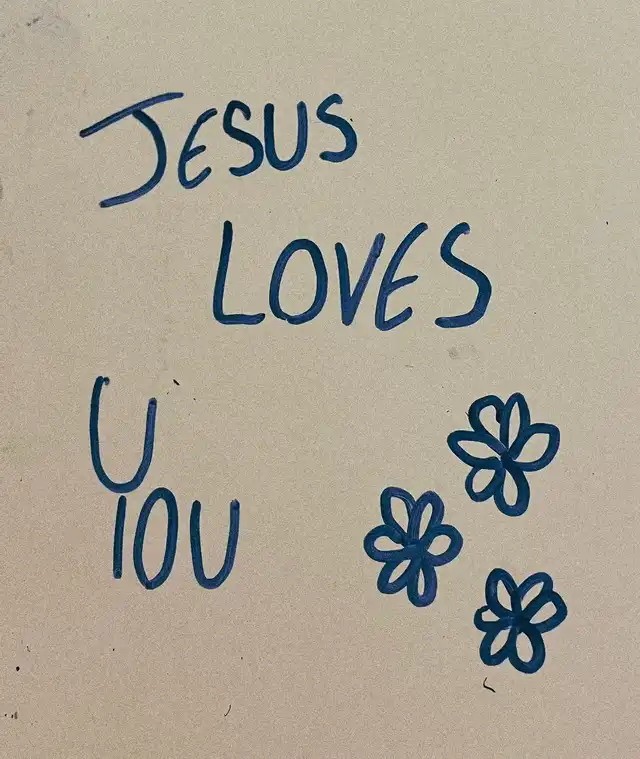 JESUS
LOVES
U
IOU